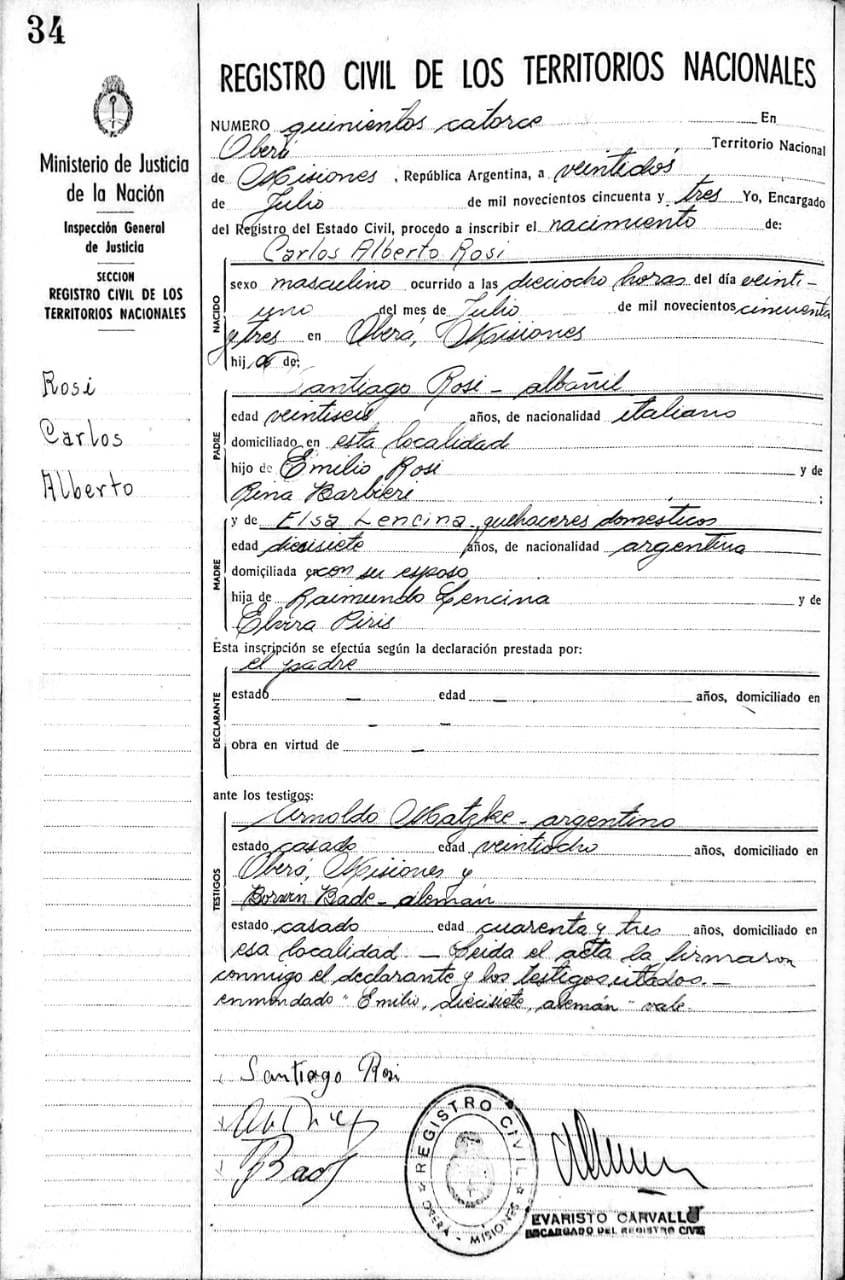 34
Ministerio de Justicia
de la Nación
Inspección General
de Justicia
SECCION
REGISTRO CIVIL DE LOS
TERRITORIOS NACIONALES
Rosi
Carlos
Alberto
REGISTRO CIVIL DE LOS TERRITORIOS NACIONALES
NUMERO quinientos catorce En
Oberá Territorio Nacional
de Misiones, República Argentina, a veintidos
de Julio de mil novecientos cincuenta y tres Yo, Encargado
del Registro del Estado Civil, procedo a inscribir el nacimiento de:
Carlos Alberto Rosi
NACIDO
sexo masculino ocurrido a las dieciocho horas del día veinti-
uno del mes de Julio de mil novecientos cincuenta
y tres en Oberá, Misiones
hijo de:
PADRE
Santiago Rosi - albañil
edad veintiseis años, de nacionalidad italiano
domiciliado en esta localidad
hijo de Emilio Rosi y de
Rina Barbieri ;
MADRE
y de Elsa Lencina - quehaceres domesticos
edad diecisiete años, de nacionalidad argentina
domiciliada con su esposo
hija de Raimundo Lencina y de
Elvira Piris
Esta inscripción se efectúa según la declaración prestada por:
DECLARANTE
el padre
estado — edad — años, domiciliado en
— —
obra en virtud de —
ante los testigos:
TESTIGOS
Arnoldo Matzke - argentino
estado casado edad veintiocho años, domiciliado en
Oberá, Misiones y
Borwin Bade - alemán
estado casado edad cuarenta y tres años, domiciliado en
esa localidad — Leida el acta la firmaron
conmigo el declarante y los testigos citados. —
enmendado "Emilio, diecisiete, alemán" vale.
Santiago Rosi
Bade
REGISTRO CIVIL
OBERÁ - MISIONES
EVARISTO CARVALLO
ENCARGADO DEL REGISTRO CIVIL